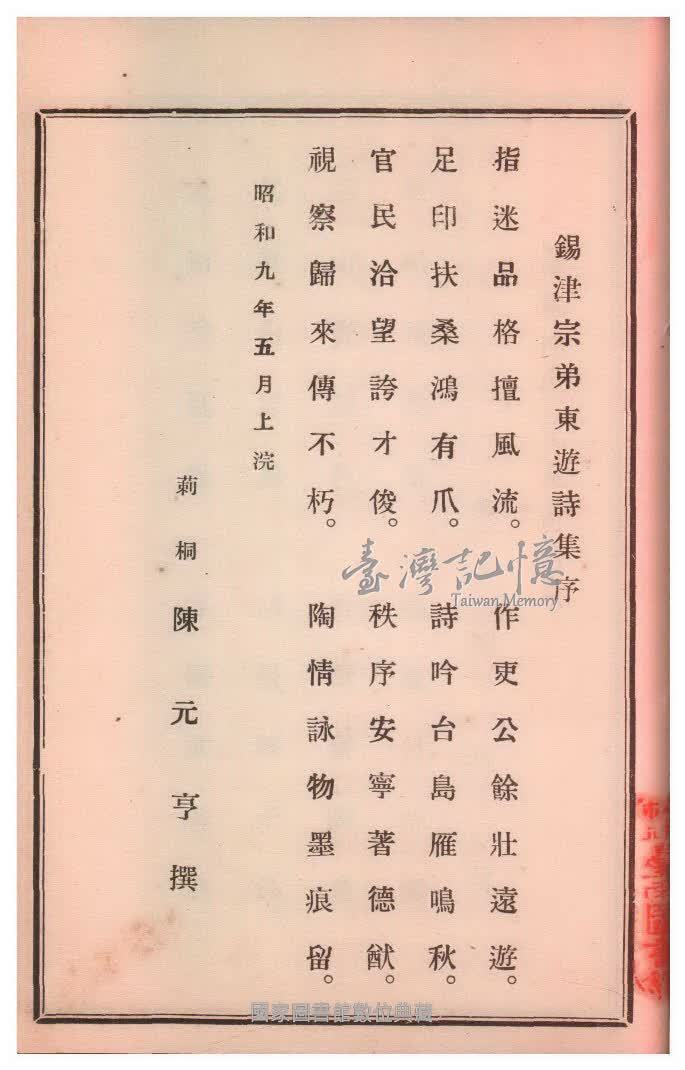 錫津宗弟東遊詩集序
指迷品格擅風流。作吏公餘壯遠遊。
足印扶桑鴻有爪。詩吟台島雁鳴秋。
官民洽望誇才俊。秩序安寧著德猷。
視察歸來傳不朽。陶情詠物墨痕留。
昭和九年五月上浣
莿桐 陳元亨撰
臺灣記憶
Taiwan Memory
國家圖書館數位典藏